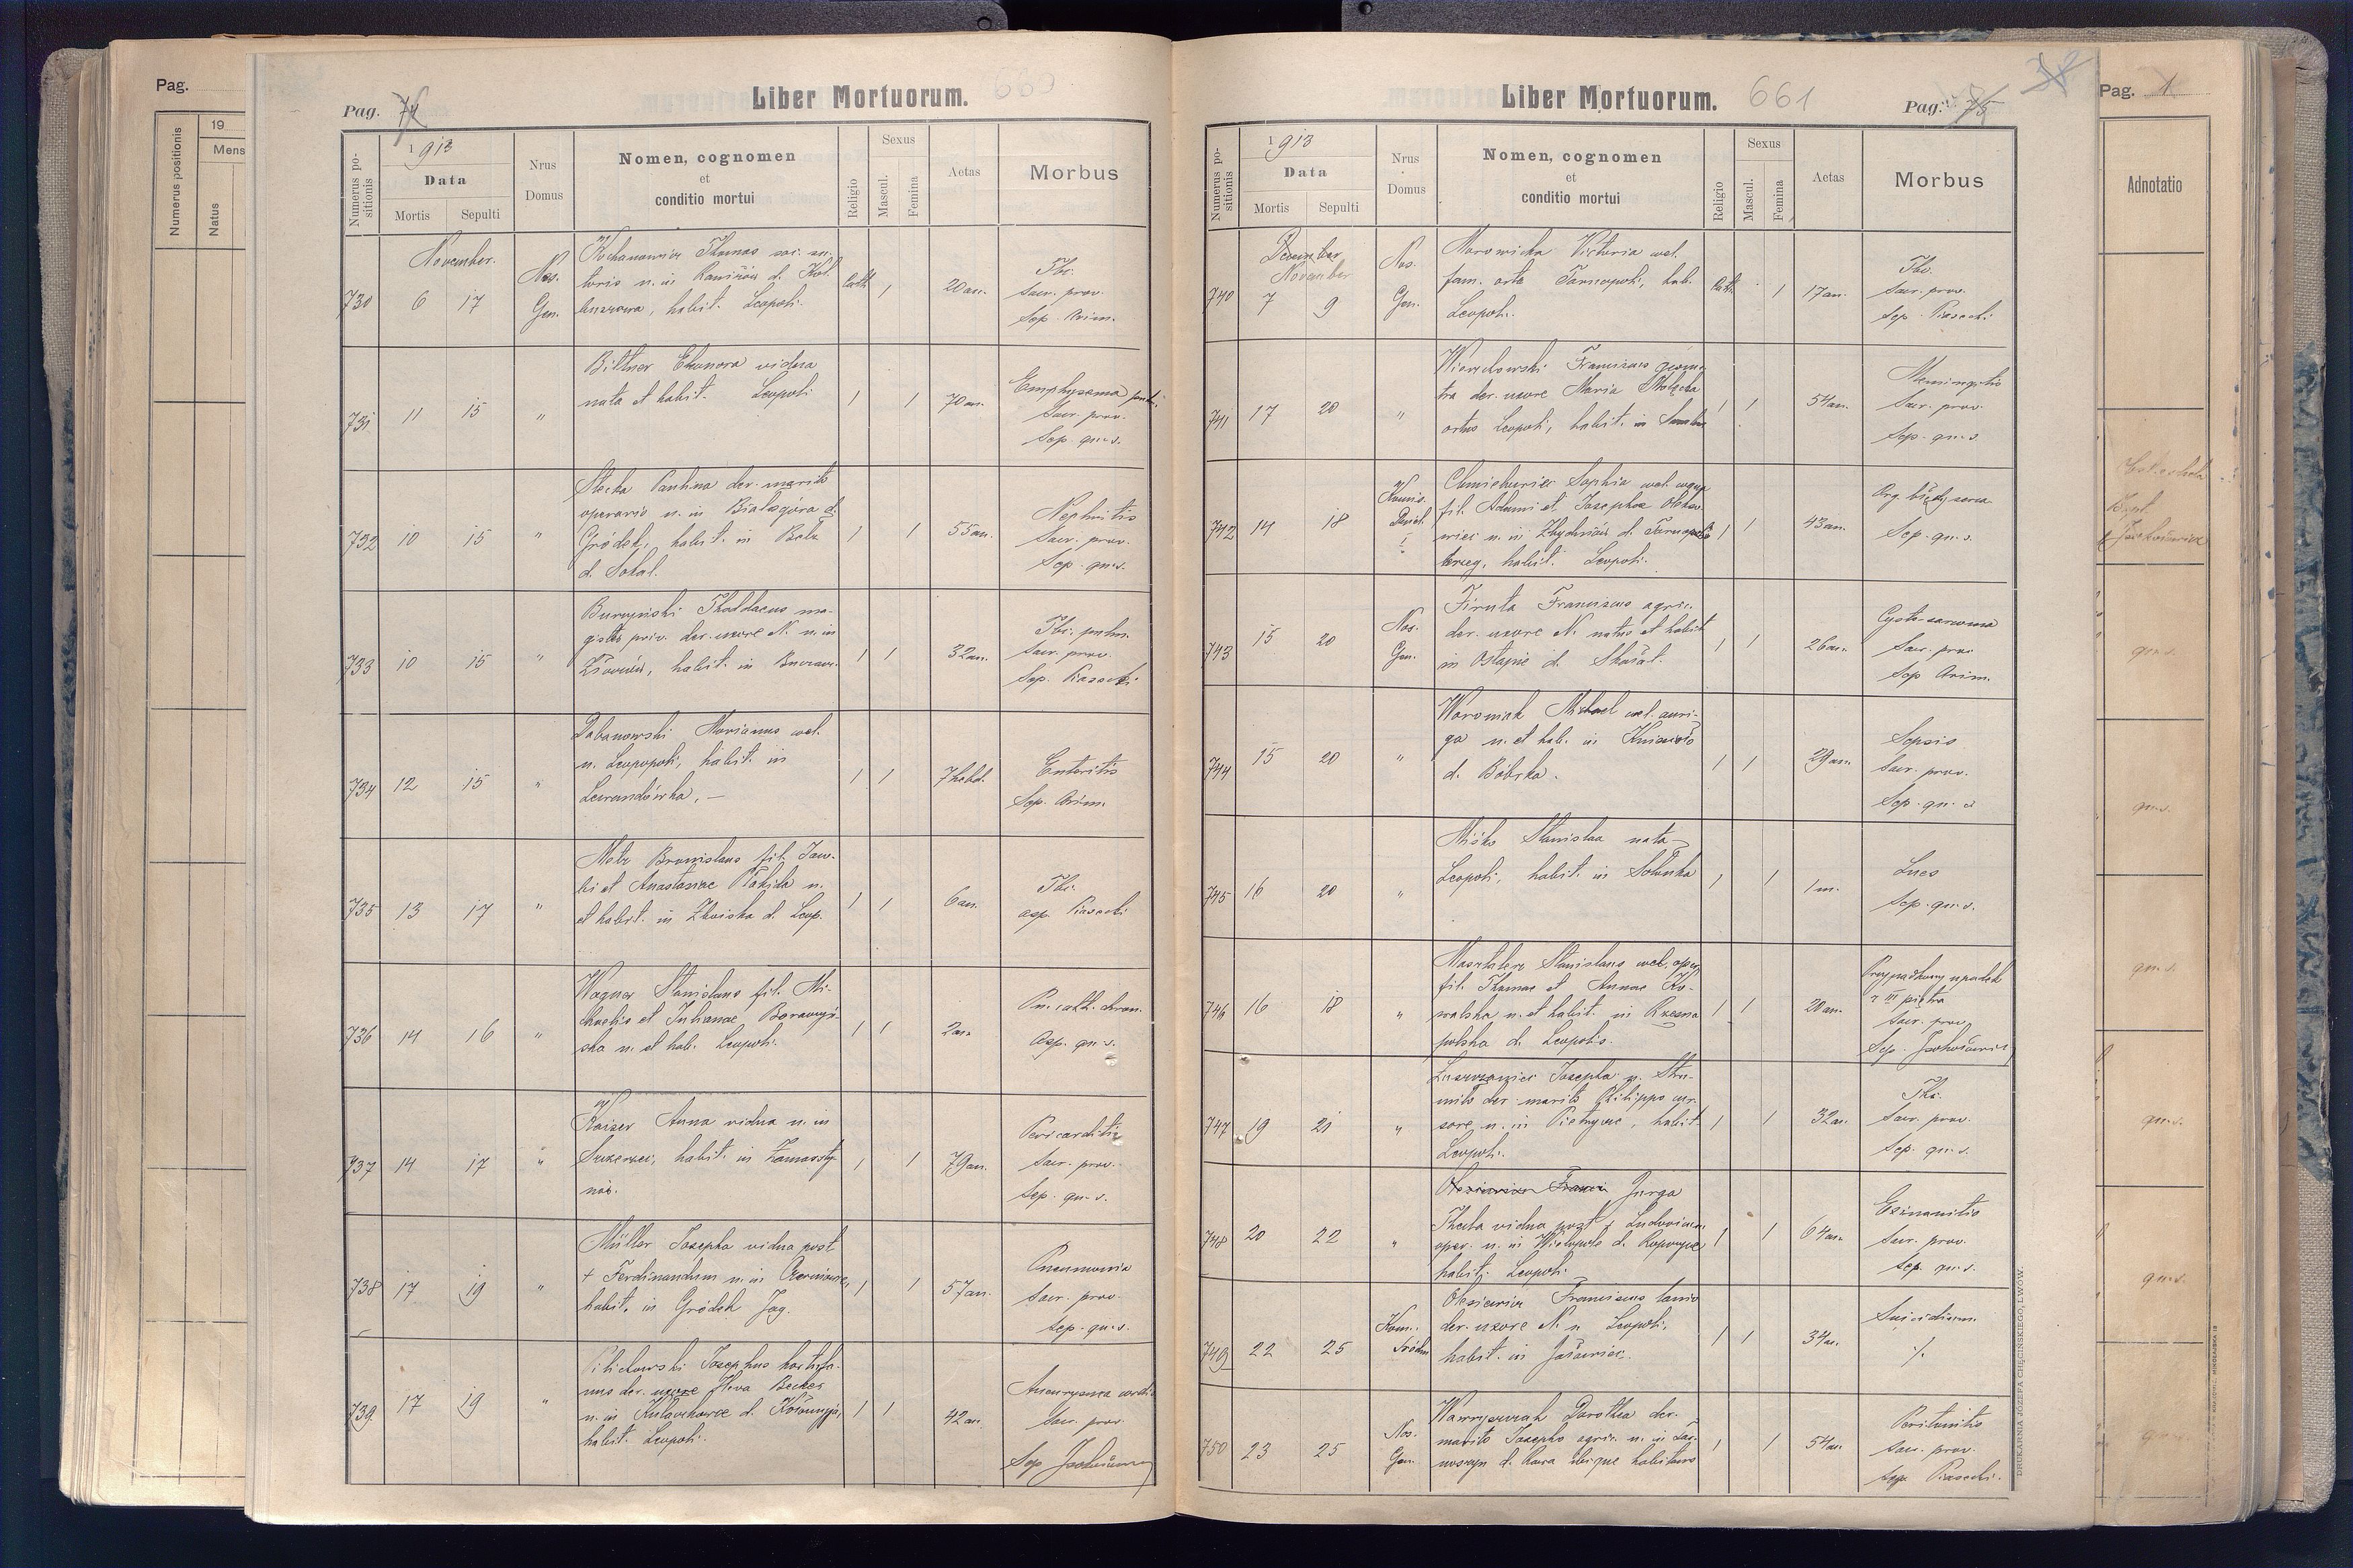 Pag.
Numerus positionis
19
Mens
Natus
Pag. 74
Liber Mortuorum. 660
Numerus positionis
1913
Data
Mortis
Sepulti
Nrus
Domus
Nomen, cognomen
et
conditio mortui
Religio
Sexus
Mascul.
Femina
Aetas
Morbus
November.
730 6 17
Nos.
Gen.
Kochanowicz Thomas soc. su-
toris n. in Raniżów d. Kol-
buszowa, habit. Leopoli.
Cath. 1 20 an.
Tbc.
Sacr. prov.
Sep. Arim.
731 11 15 "
Bittner Eleonora vidua
nata et habit. Leopoli
1 1 70 an.
Emphysema pulm.
Sacr. prov.
Sep. qu. s.
732 10 15 "
Stecka Paulina der. marito
operario n. in Białagóra d.
Gródek, habit. in Bełz
d. Sokal.
1 1 55 an.
Nephritis
Sacr. prov.
Sep. qu. s.
733 10 15 "
Burzyński Thaddaeus ma-
gister priv. der. uxore N. n. in
habit. in
1 1 32 an.
Tbc. pulm.
Sacr. prov.
Sep. Piasecki
734 12 15 "
Dabanowski Marianus cael.
n. Leopopoli, habit. in
Lewandówka. —
1 1 7 hebd.
Enteritis
Sep. Arim.
735 13 17 "
Metz Bronislaus fil. Jaco-
bi et Anastasiae Rakida n.
et habit. in Zboiska d. Leop.
1 1 6 an.
Tbc.
asp. Piasecki
736 14 16 "
Wagner Stanislaus fil. Mi-
chaelis et Julianae Baraniń-
ska n. et hab. Leopoli.
1 1 2 an.
Pn. cath. chron.
Asp. qu. s.
737 14 17 "
Kaizer Anna vidua n. in
Szczerzec, habit. in Zamarsty-
nów.
1 1 79 an.
Pericarditis
Sacr. prov.
Sep. qu. s.
738 17 19 "
Müller Josepha vidua post
+ Ferdinandum n. in
habit. in Gródek Jag.
1 1 57 an.
Pneumonia
Sacr. prov.
Sep. qu. s.
739 17 19 "
Pilichowski Josephus
der. uxore Heva Becker
n. in Kułaczkowce d. Kołomyja,
habit. Leopoli.
1 1 42 an.
Aneurysma cordis
Sacr. prov.
Sep.
Liber Mortuorum. 661
Pag. 75
Numerus positionis
1913
Data
Mortis
Sepulti
Nrus
Domus
Nomen, cognomen
et
conditio mortui
Religio
Sexus
Mascul.
Femina
Aetas
Morbus
December
November
740 7 9
Nos.
Gen.
Morowicka Victoria cael.
fam. orta Tarnopoli, hab.
Leopoli.
Cath. 1 17 an.
Tbc.
Sacr. prov.
Sep. Piasecki
741 17 20 "
Wierzchowski Franciscus geome-
tra der. uxore Maria
ortus Leopoli, habit. in
1 1 54 an.
Meningitis
Sacr. prov.
Sep. qu. s.
742 14 18
Komis.
Dziel.
I
Sophia cael.
fil. Adami et Josephae
n. in d.
brzeg, habit. Leopoli.
1 1 43 an.
Sep. qu. s.
743 15 20
Nos.
Gen.
Firuta Franciscus agric.
der. uxore N. natus et habit
in Ostapie d. Skałat.
1 1 26 an.
Cysto-sarcoma
Sacr. prov.
Sep. Arim.
744 15 20 "
Woroniak Michael cael. auri-
ga n. et hab. in
d. Bóbrka.
1 1 29 an.
Sepsis
Sacr. prov.
Sep. qu. s.
745 16 20 "
Miśko Stanislaa nata
Leopoli, habit. in Sokoniki
1 1 1 m.
Lues
Sep. qu. s.
746 16 18 "
Masztalerz Stanislaus cael. oper.
fil. Thomae et Annae Ko-
walska n. et habit. in Rzesna
polska d. Leopolis.
1 1 20 an.
Przypadkowy upadek
z III piętra
Sacr. prov.
Sep.
747 19 21 "
Josepha n. Stru-
miło der. marito Philippo cur-
sore n. in Pietrycze, habit.
Leopoli.
1 1 32 an.
Tbc.
Sacr. prov.
Sep. qu. s.
748 20 22 "
Olesiewicz Franci Jurga
Thecla vidua post + Ludovicum
oper. n. in Wielopole d. Ropczyce
habit. Leopoli.
1 1 64 an.
Exinanitio
Sacr. prov.
Sep. qu. s.
749 22 25
Kom.
Śródm
Olesiewicz Franciscus lanio
der. uxore N. n. Leopoli,
habit. in
1 1 34 an.
Suicidium.
./.
750 23 25
Nos.
Gen.
Wawryszczak Dorothea der.
marito Josepho agric. n. in
d. Rawa ibique habitans
1 1 54 an.
Peritonitis
Sacr. prov.
Sep. Piasecki.
DRUKARNIA JÓZEFA CHĘCIŃSKIEGO, LWÓW.
Pag. 1
Adnotatio
qu. s.
qu. s.
qu. s.
qu. s.
qu. s.